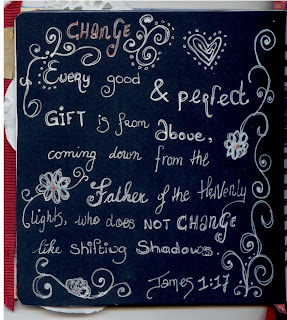 CHANGE
Every good
& perfect
GIFT is from above,
coming down from the
Father of the Heavenly
lights, who does NOT CHANGE
like shifting shadows.
James 1:17